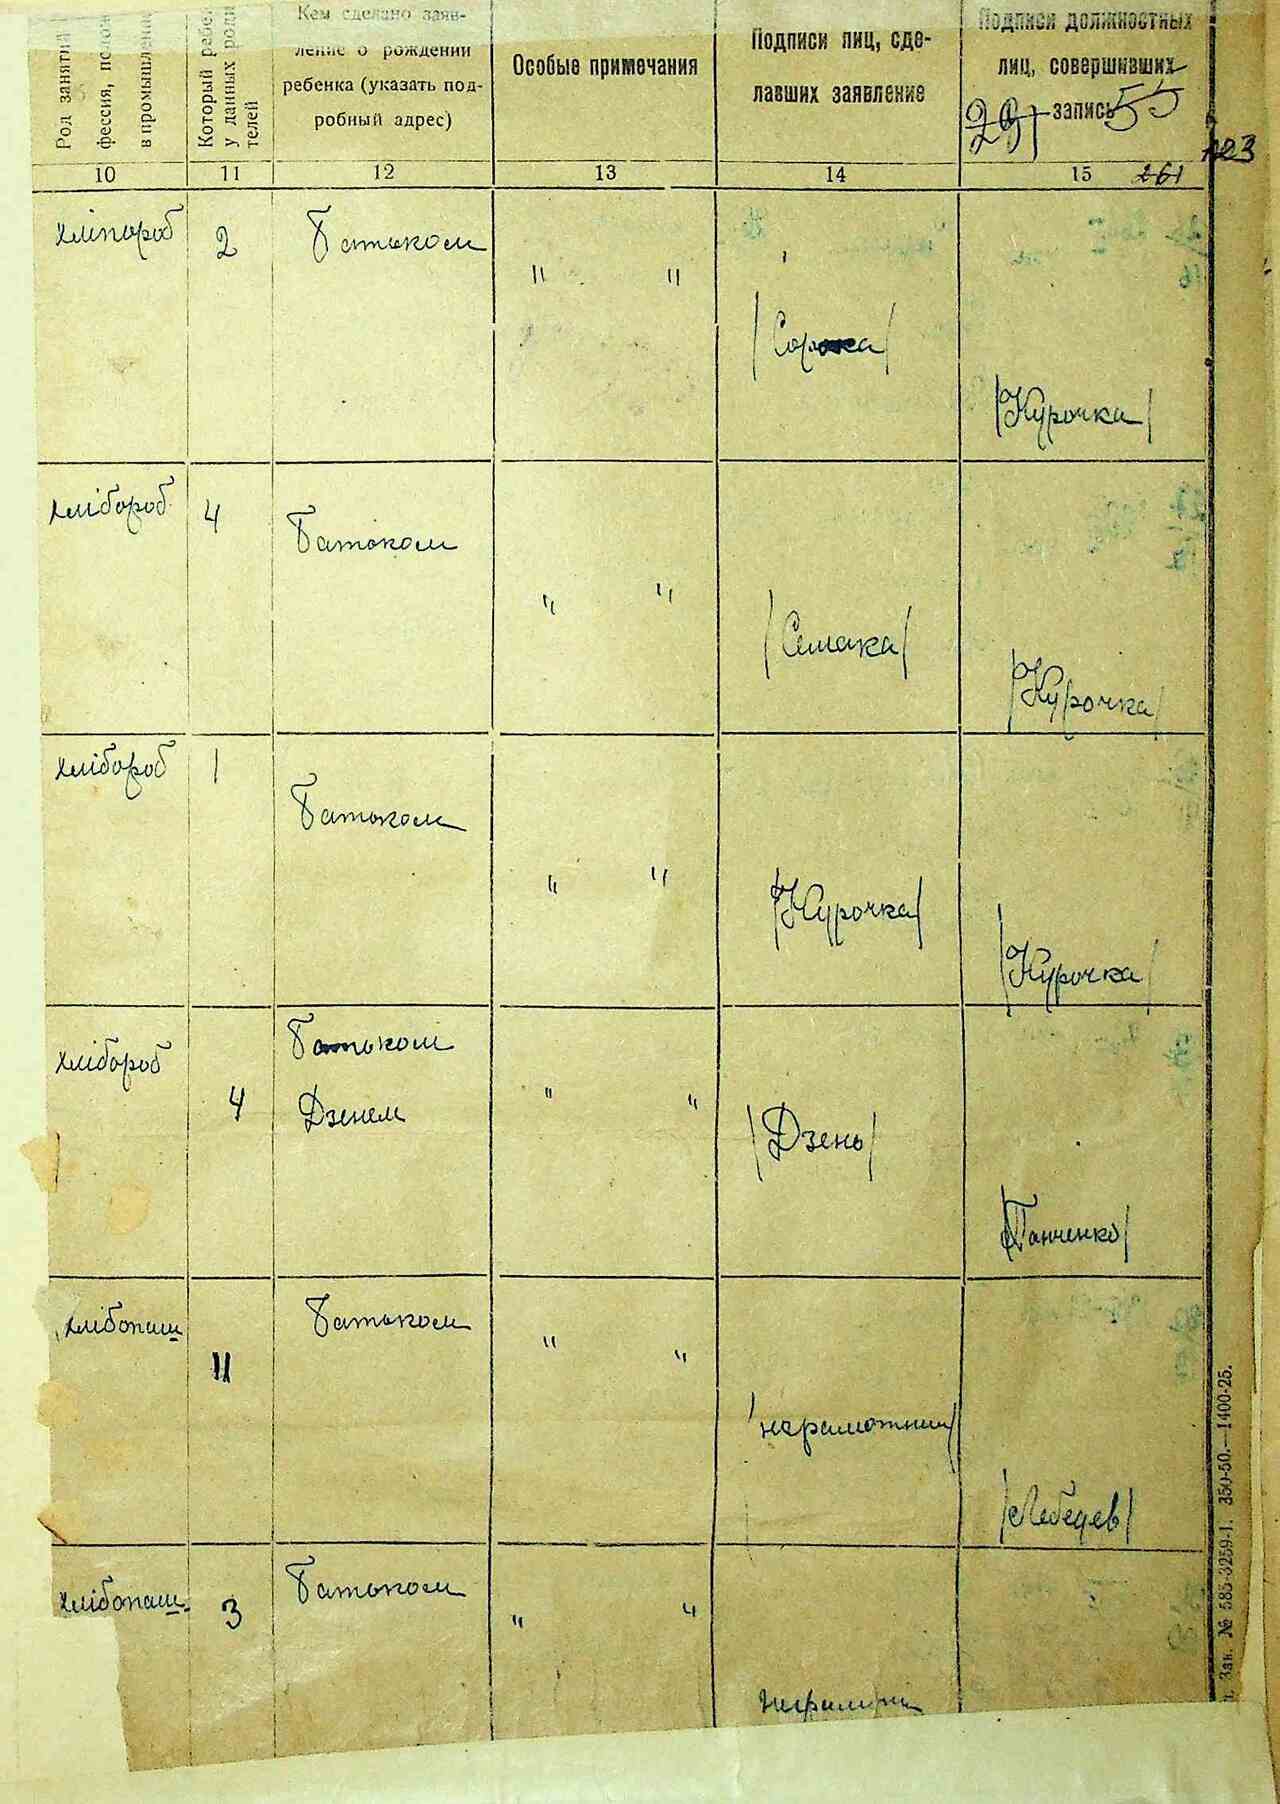 Род занятий
фессия, полож
в промышлен
Который ребе
у данных роди
телей
Кем сделано заяв-
ление о рождении
ребенка (указать под-
робный адрес)
Особые примечания
Подписи лиц, сде-
лавших заявление
Подписи должностных
лиц, совершивших
запись
55
291
123
10
11
12
13
14
15
261
хліпороб
2
Батьком
" "
/Сорока/
/Курочка/
хлібороб
4
Батьком
" "
/Семака/
/Курочка/
хлібороб
1
Батьком
" "
/Курочка/
/Курочка/
хлібороб
4
Батьком
Дзенем
" "
/Дзень/
/Панченко/
хлібопаш
11
Батьком
" "
/неграмотний/
/Лебедев/
хлібопаш.
3
Батьком
" "
Зак. № 585-3259-1. 350-50.—1400-25.